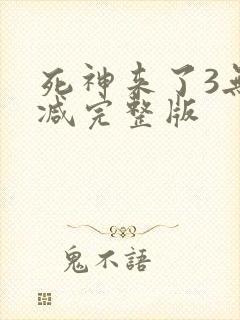 死神来了3無
减完整版
鬼不語